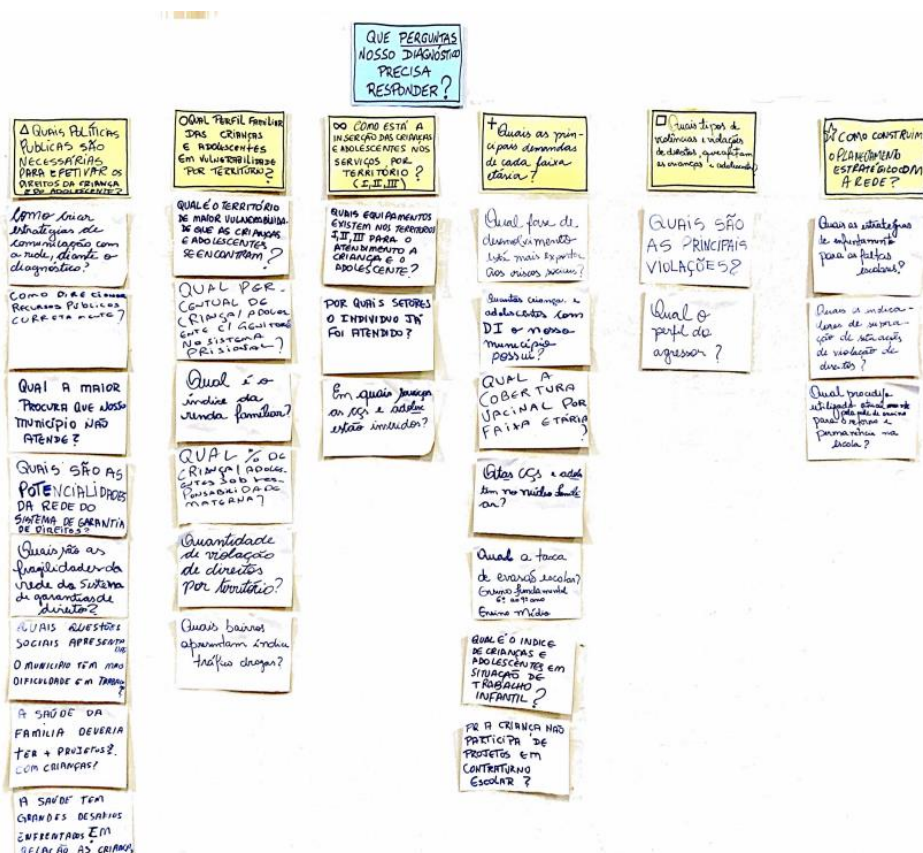 QUE PERGUNTAS
NOSSO DIAGNÓSTICO
PRECISA
RESPONDER?
△ QUAIS POLÍTICAS
PUBLICAS SÃO
NECESSÁRIAS
PARA EFETIVAR OS
DIREITOS DA CRIANÇA
E DO ADOLESCENTE?
Como criar
estratégias de
comunicação com
a rede, diante o
diagnóstico?
COMO DIRECIONAR
RECURSOS PUBLICOS
CORRETAMENTE?
QUAL A MAIOR
PROCURA QUE NOSSO
MUNICÍPIO NÃO
ATENDE?
QUAIS SÃO AS
POTENCIALIDADES
DA REDE DO
SISTEMA DE GARANTIA
DE DIREITOS?
Quais são as
fragilidades da
rede do Sistema
de garantias de
direitos?
QUAIS QUESTÕES
SOCIAIS APRESENTA
O MUNICIPIO TEM MAIS
DIFICULDADE EM
A SAÚDE DA
FAMILIA DEVERIA
TER + PROJETOS?
COM CRIANÇAS?
A SAÚDE TEM
GRANDES DESAFIOS
ENFRENTADOS EM
RELAÇÃO AS CRIANÇAS
O QUAL PERFIL FAMILIAR
DAS CRIANÇAS
E ADOLESCENTES
EM VULNERABILIDADE
POR TERRITÓRIO?
QUAL É O TERRITÓRIO
DE MAIOR VULNERABILIDA-
DE QUE AS CRIANÇAS
E ADOLESCENTES
SE ENCONTRAM?
QUAL PER-
CENTUAL DE
CRIANÇA/ADOLES
ENTE C/ GENITORES
NO SISTEMA
PRISIONAL?
Qual é o
índice da
renda familiar?
QUAL % DE
CRIANÇA/ADOLES-
ENTES SOB RES-
PONSABILIDADE
MATERNA?
Quantidade
de violação
de direitos
por território?
Quais bairros
apresentam índice
tráfico drogas?
∞ COMO ESTÁ A
INSERÇÃO DAS CRIANÇAS
E ADOLESCENTES NOS
SERVIÇOS POR
TERRITÓRIO?
(I, II, III)
QUAIS EQUIPAMENTOS
EXISTEM NOS TERRITORIOS
I, II, III PARA O
ATENDIMENTO A
CRIANÇA E O
ADOLESCENTE?
POR QUAIS SETORES
O INDIVIDUO JÁ
FOI ATENDIDO?
Em quais serviços
as cçs e adoles
estão inseridos?
+ Quais as prin-
cipais demandas
de cada faixa
etária?
Qual fase de
desenvolvimento
está mais exposta
aos riscos sociais?
Quantas crianças e
adolescentes com
DI o nosso
município
possui?
QUAL A
COBERTURA
VACINAL POR
FAIXA ETÁRIA?
Qtas cçs e adols
tem no núcleo famili
ar?
Qual a taxa
de evasão escolar?
Ensino fundamental
6º ao 9º ano
Ensino Médio
QUAL É O INDICE
DE CRIANÇAS E
ADOLESCENTES EM
SITUAÇÃO DE
TRABALHO
INFANTIL?
A CRIANÇA NÃO
PARTICIPA DE
PROJETOS EM
CONTRATURNO
ESCOLAR?
□ Quais tipos de
violências e violações
de direitos, que afetam
as crianças e adolescentes?
QUAIS SÃO
AS PRINCIPAIS
VIOLAÇÕES?
Qual o
perfil do
agressor?
☆ COMO CONSTRUIR
O PLANEJAMENTO
ESTRATÉGICO COM
A REDE?
Quais as estratégias
de enfrentamento
para as faltas
escolares?
Quais os indica-
dores de supera-
ção de situações
de violação de
direitos?
Qual
utilizado atualmente
pela rede de ensino
para o retorno e
permanência na
escola?